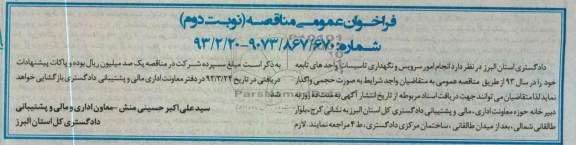 فراخوان عمومی مناقصه (نوبت دوم)
شماره: ۹۰۷۳/۸۶۷/۶۷۰-۹۳/۲/۲۰
دادگستری استان البرز در نظر دارد انجام امور سرویس و نگهداری تاسیسات واحد های تابعه
خود را در سال ۹۳ از طریق مناقصه عمومی به متقاضیان واجد شرایط به صورت حجمی واگذار
نماید لذا متقاضیان می توانند جهت دریافت اسناد مربوطه از تاریخ انتشار آگهی به مدت
دبیر خانه حوزه معاونت اداری، مالی و پشتیبانی دادگستری کل استان البرز به نشانی کرج، بلوار
طالقانی شمالی، بعد از میدان طالقانی، ساختمان مرکزی دادگستری، ط ۴ مراجعه نمایند. لازم
به ذکر است مبلغ سپرده شرکت در مناقصه یک صد میلیون ریال بوده و پاکات پیشنهادات
دریافتی در تاریخ ۹۳/۳/۲۴ در دفتر معاونت اداری مالی و پشتیبانی دادگستری بازگشایی خواهد
سید علی اکبر حسینی منش - معاون اداری و مالی و پشتیبانی
دادگستری کل استان البرز